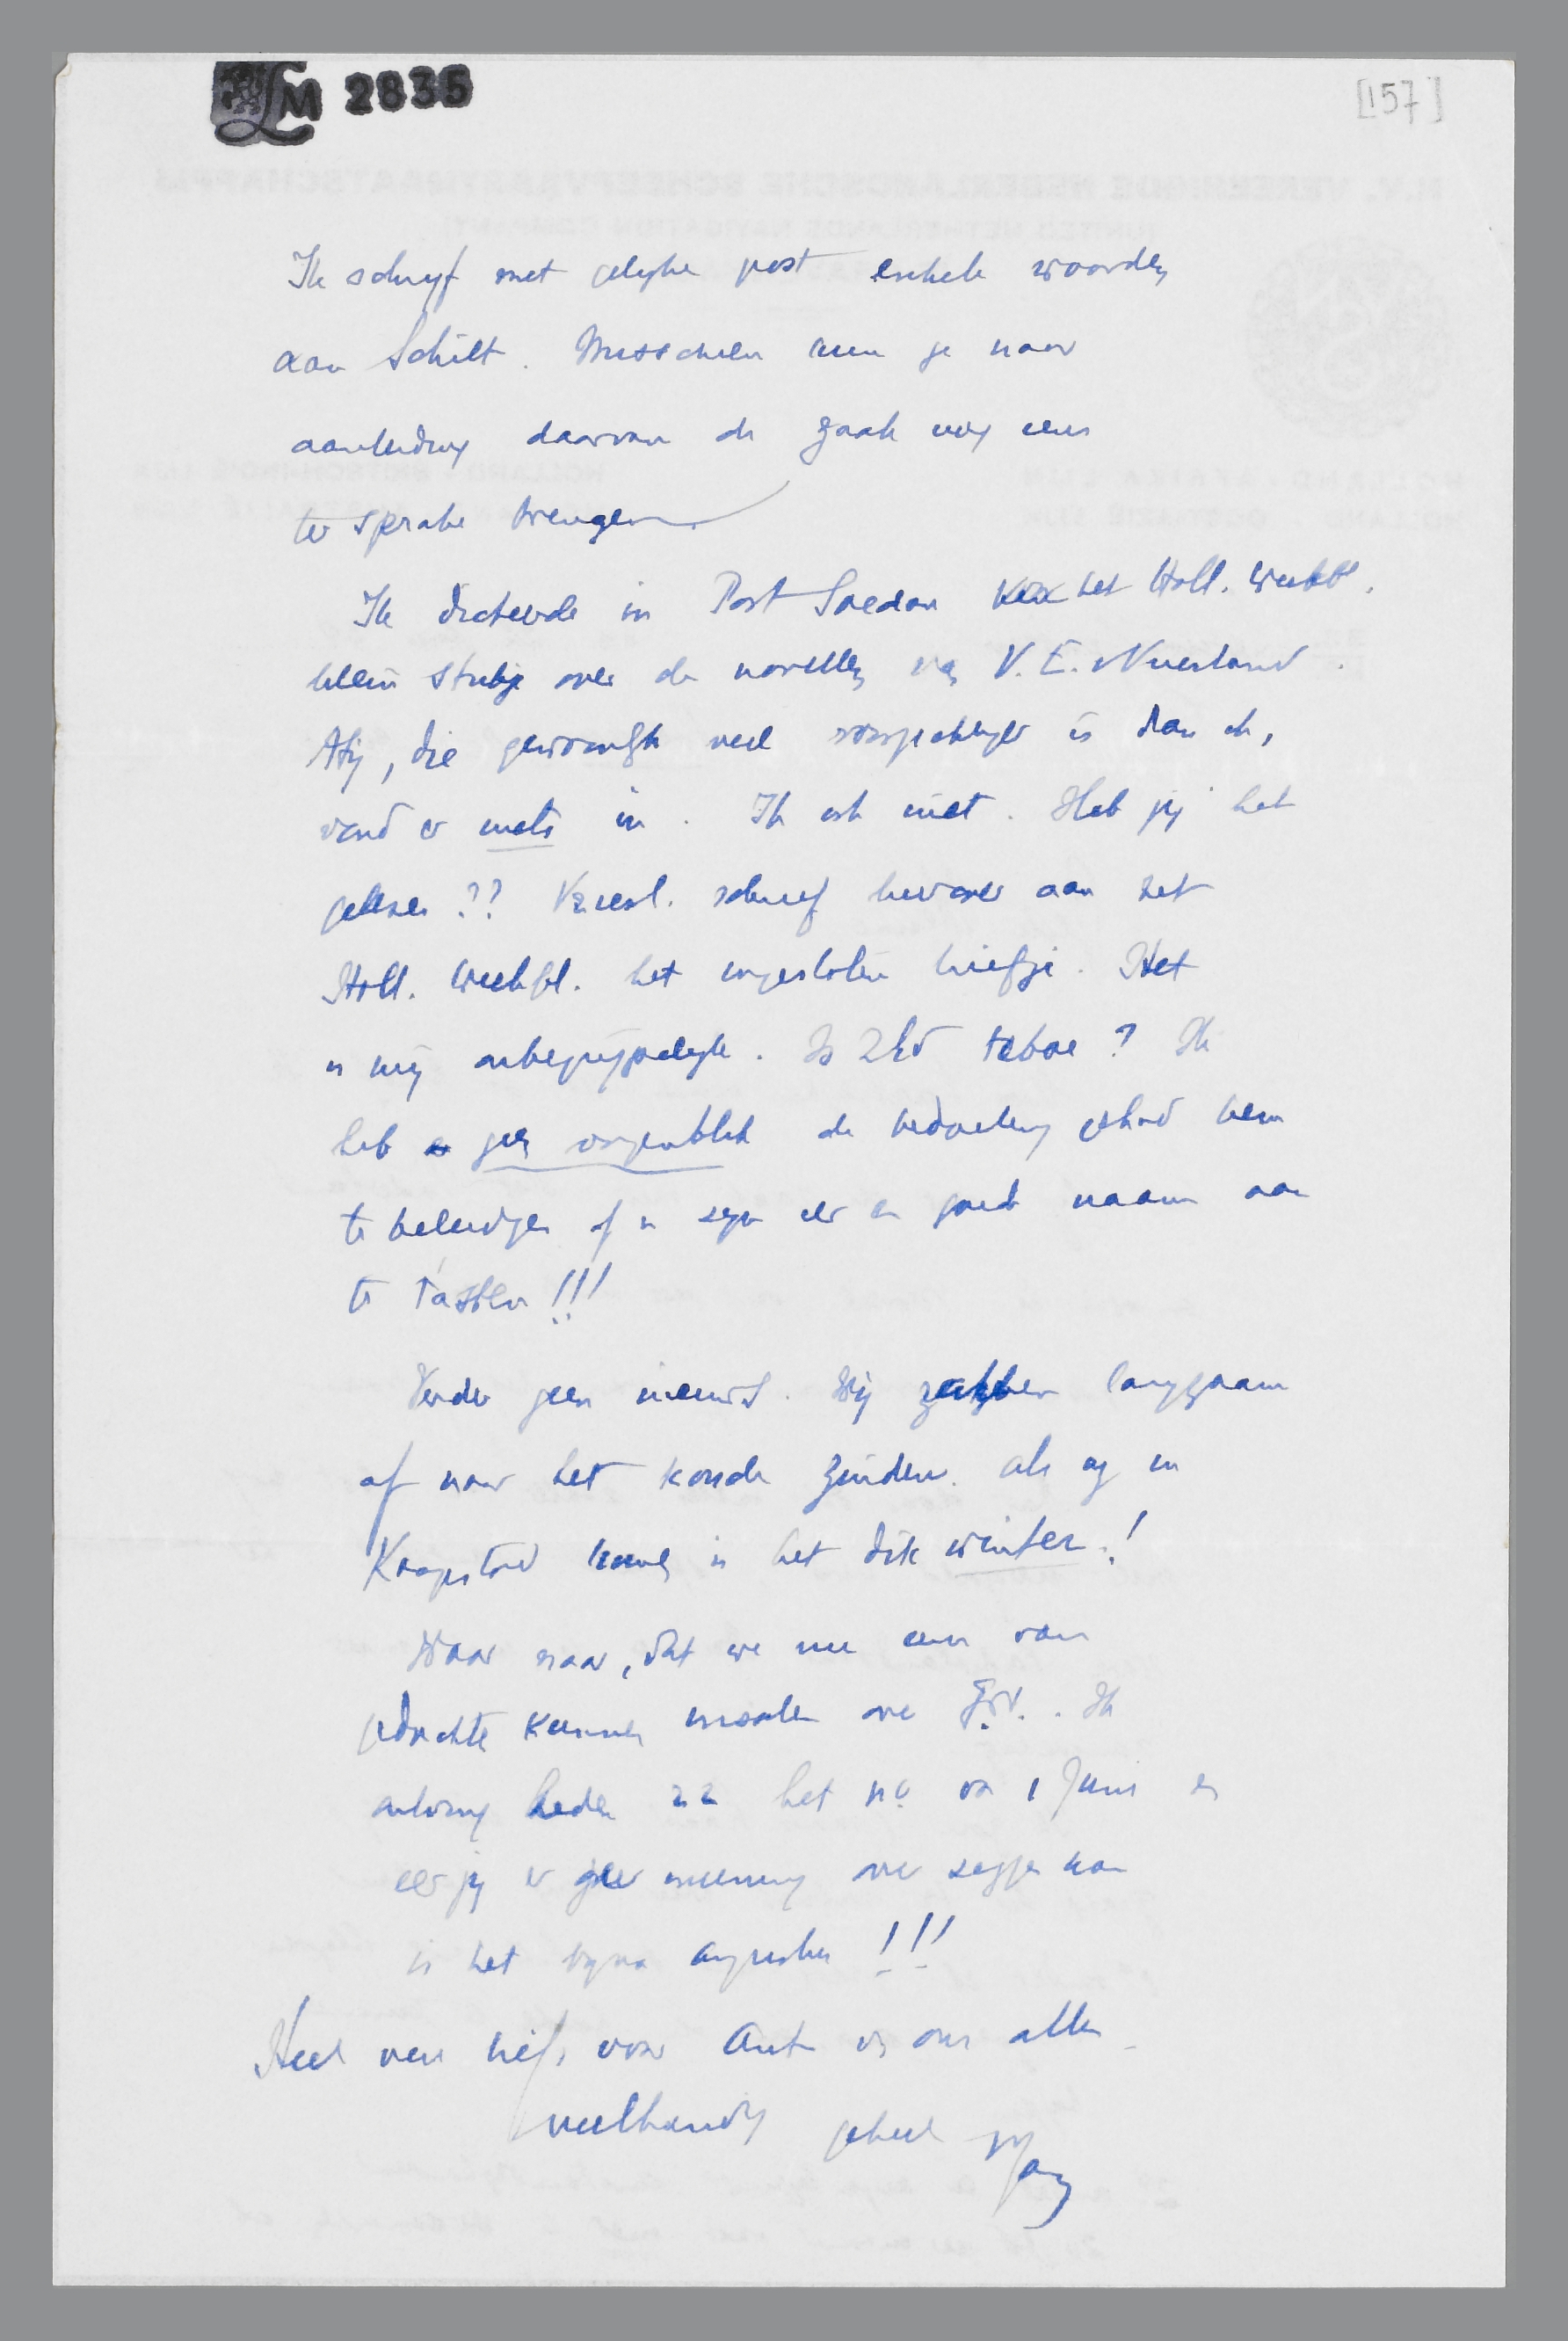 LM 2835
[157]
Ik schryf met gelyke post enkele woorden
aan Schilt. Misschien kun je naar
aanleiding daarvan de zaak nog eens
te sprake brengen
Ik dicteerde in Port Soedan het Holl. Weekbl.
klein stukje over de novellen van V. E. v Vriesland.
Aty, die gewoonlyk veel voorzichtiger is dan ik,
vond er niets in. Ik ook niet. Heb jij het
gelezen?? Vriesl. schreef hierover aan het
Holl. Weekbl. het ingesloten briefje. Het
is mij onbegrijpelyk. Is ZEd taboe? Ik
heb geen oogenblik de bedoeling gehad hem
te beleedigen of in zyn eer en goede naam aan
te tasten!!!
Verder geen nieuws. Wij zakken langzaam
af naar het koude zuiden. Als wy in
Kaapstad komen is het dik winter!
Waar maar, dat we nu eens van
gedachte kunnen wisselen over
ontving heden 22 het no van 1 Juni en
eer jij er meening over zeggen kan
is het byna Augustus!!!
Heel veel liefs voor Ant van ons allen
veelhandig geheel Jany